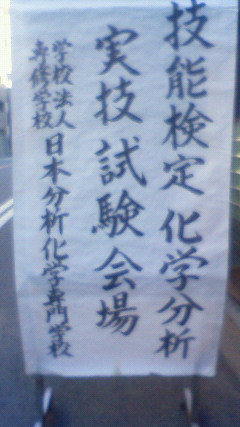 技能検定 化学分析
実技試験会場
学校法人
専修学校
日本分析化学専門学校